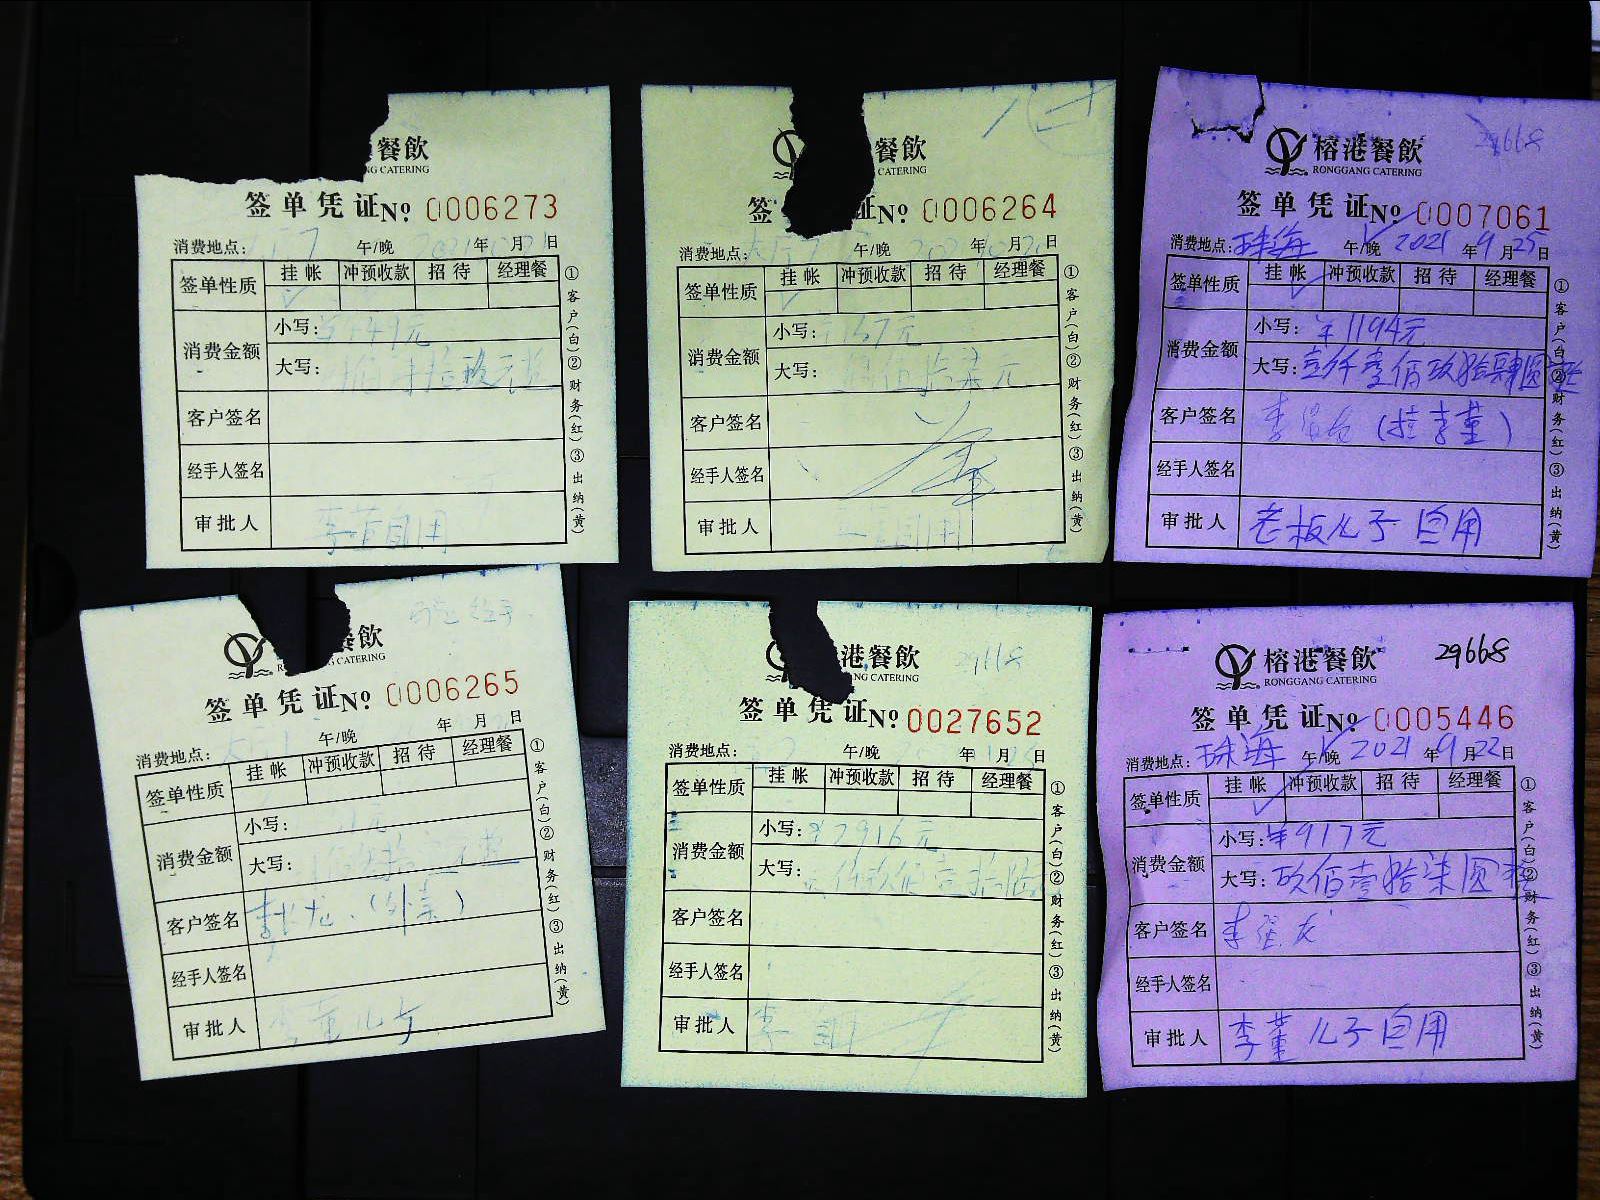 餐飲
NG CATERING
签单凭证№ 0006273
消费地点: 7 午/晚 2021年 月 日
签单性质 挂帐 冲预收款 招待 经理餐
消费金额 小写: 元
大写: 拾玖元整
客户签名
经手人签名
审批人 李董自用
①客户(白)②财务(红)③出纳(黄)
餐飲
NG CATERING
签 证№ 0006264
消费地点: 午/晚 年 月 日
签单性质 挂帐 冲预收款 招待 经理餐
消费金额 小写: 167元
大写: 佰 拾柒元
客户签名
经手人签名
审批人 自用
①客户(白)②财务(红)③出纳(黄)
榕港餐飲 29668
RONGGANG CATERING
签单凭证№ 0007061
消费地点: 珠海 午/晚 2021年9月25日
签单性质 挂帐 冲预收款 招待 经理餐
消费金额 小写: ¥1194元
大写: 壹仟壹佰玖拾肆圆整
客户签名 李 (挂李董)
经手人签名
审批人 老板儿子自用
①客户(白)②财务(红)③出纳(黄)
餐飲
CATERING
签单凭证№ 0006265
消费地点: 午/晚 年 月 日
签单性质 挂帐 冲预收款 招待 经理餐
消费金额 小写: 元
大写: 元整
客户签名 李 龙 (外卖)
经手人签名
审批人 李董儿子
①客户(白)②财务(红)③出纳(黄)
港餐飲
NG CATERING
签单凭证№ 0027652
消费地点: 午/晚 年 月 日
签单性质 挂帐 冲预收款 招待 经理餐
消费金额 小写: ¥2916元
大写: 仟玖佰壹拾陆
客户签名
经手人签名
审批人 李 自用
①客户(白)②财务(红)③出纳(黄)
榕港餐飲 29668
RONGGANG CATERING
签单凭证№ 0005446
消费地点: 珠海 午/晚 2021年9月22日
签单性质 挂帐 冲预收款 招待 经理餐
消费金额 小写: ¥917元
大写: 玖佰壹拾柒圆整
客户签名 李 龙
经手人签名
审批人 李董儿子自用
①客户(白)②财务(红)③出纳(黄)